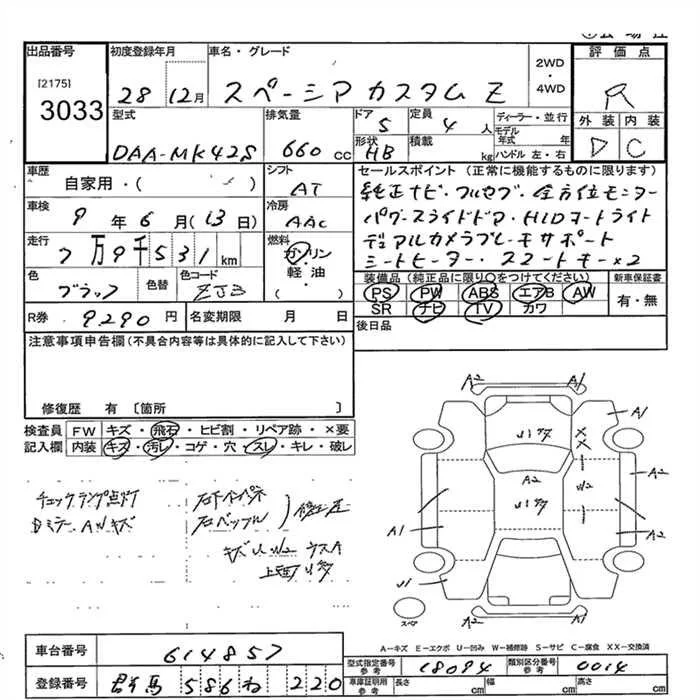 出品番号 初度登録年月 車名・グレード 評価点
[2175]
3033
28 12月 スペーシア カスタム Z
2WD・4WD
R
型式 排気量 ドア 定員 ディーラー・並行
DAA-MK42S 660cc 5 4人
形状 積載 モデル年式 年
HB kg ハンドル 左・右
外装 内装
D C
車歴 自家用・( ) シフト AT
車検 9年6月(13日) 冷房 AAC
走行 7万9千531km 燃料 ガソリン 軽油・( )
色 ブラック 色替 色コード ZJ3
R券 9290円 名変期限 月 日
セールスポイント(正常に機能するものに限ります)
純正ナビ・フルセグ・全方位モニター
パワースライドドア・HIDオートライト
デュアルカメラブレーキサポート
シートヒーター・スマートキー×2
装備品(純正品に限り○をつけてください) 新車保証書
PS PW ABS エアB AW 有・無
SR ナビ TV カワ
後日品
注意事項申告欄(不具合内容等は具体的に記入して下さい)
修復歴 有〔箇所 〕
検査員記入欄
FW キズ・飛石・ヒビ割・リペア跡・×要
内装 キズ・汚レ・コゲ・穴・スレ・キレ・破レ
チェックランプ点灯
Dミラー AWキズ
修正
キズ U W2 ウスA
A2 A1
A1
U1タタ
X
X
A2
U1タタ
W2
A2
A1
A2
U1
A2 A1
スペア
A-キズ E-エクボ U-凹み W-補修跡 S-サビ C-腐食 XX-交換済
車台番号 614857
登録番号 群馬 586 ね 220
型式指定番号 参考 18094 類別区分番号 参考 0014
車庫証明用 参考 長さ cm 幅 cm 高さ cm